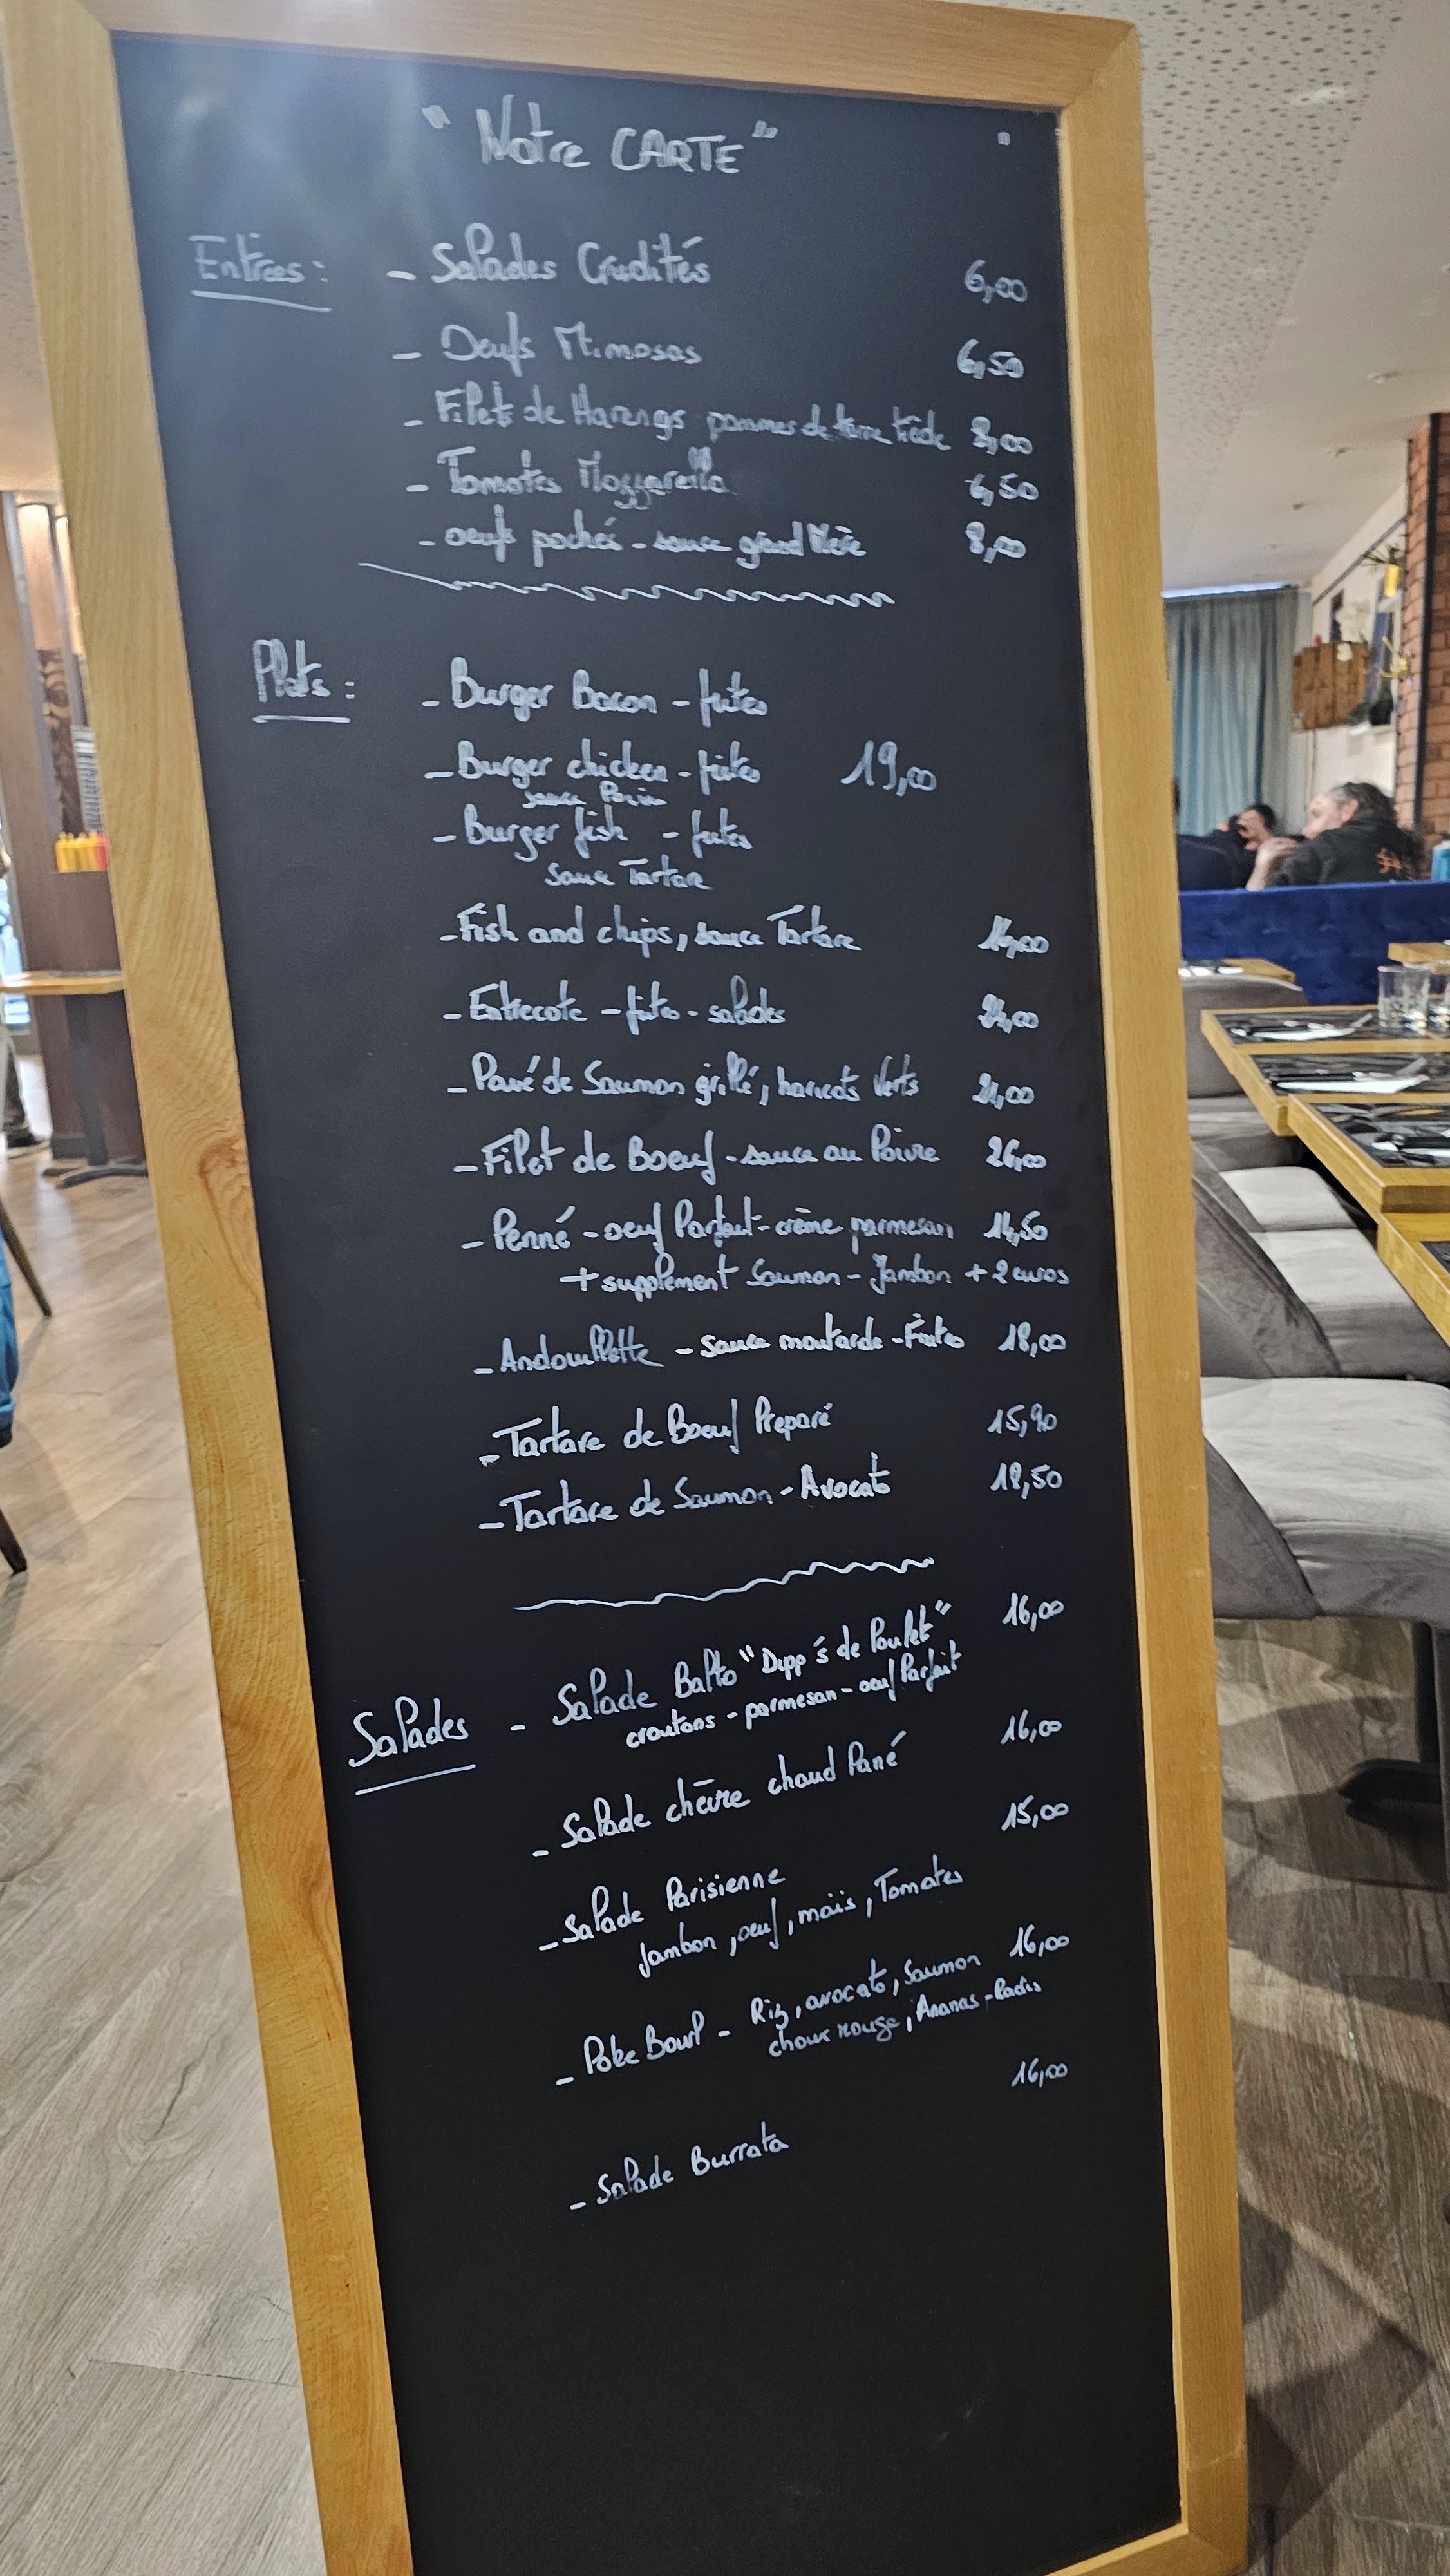 " Notre CARTE "
Entrées : - Salades Crudités 6,00
- Oeufs Mimosas 6,50
- Filets de Harengs pommes de terre tiède 8,00
- Tomates Mozzarella 6,50
- oeufs pochés - sauce grand Mère 8,00
Plats : - Burger Bacon - frites
- Burger chicken - frites 19,00
sauce
- Burger fish - frites
sauce Tartare
- Fish and chips, sauce Tartare
- Entrecote - frites - salades
- Pavé de Saumon grillé, haricots Verts
- Filet de Boeuf - sauce au Poivre 26,00
- Penné - oeuf Parfait - crème parmesan 14,50
+ supplément Saumon - Jambon + 2 euros
- Andouillette - sauce moutarde - Frites 18,00
- Tartare de Boeuf Préparé 15,90
- Tartare de Saumon - Avocat 18,50
Salades - Salade Balto " Dipp's de Poulet " 16,00
croutons - parmesan - oeuf Parfait
- Salade chèvre chaud Pané 16,00
- Salade Parisienne 15,00
Jambon, oeuf, maïs, Tomates
- Poke Bowl - Riz, avocat, Saumon 16,00
choux rouge, Ananas - Radis
- Salade Burrata 16,00